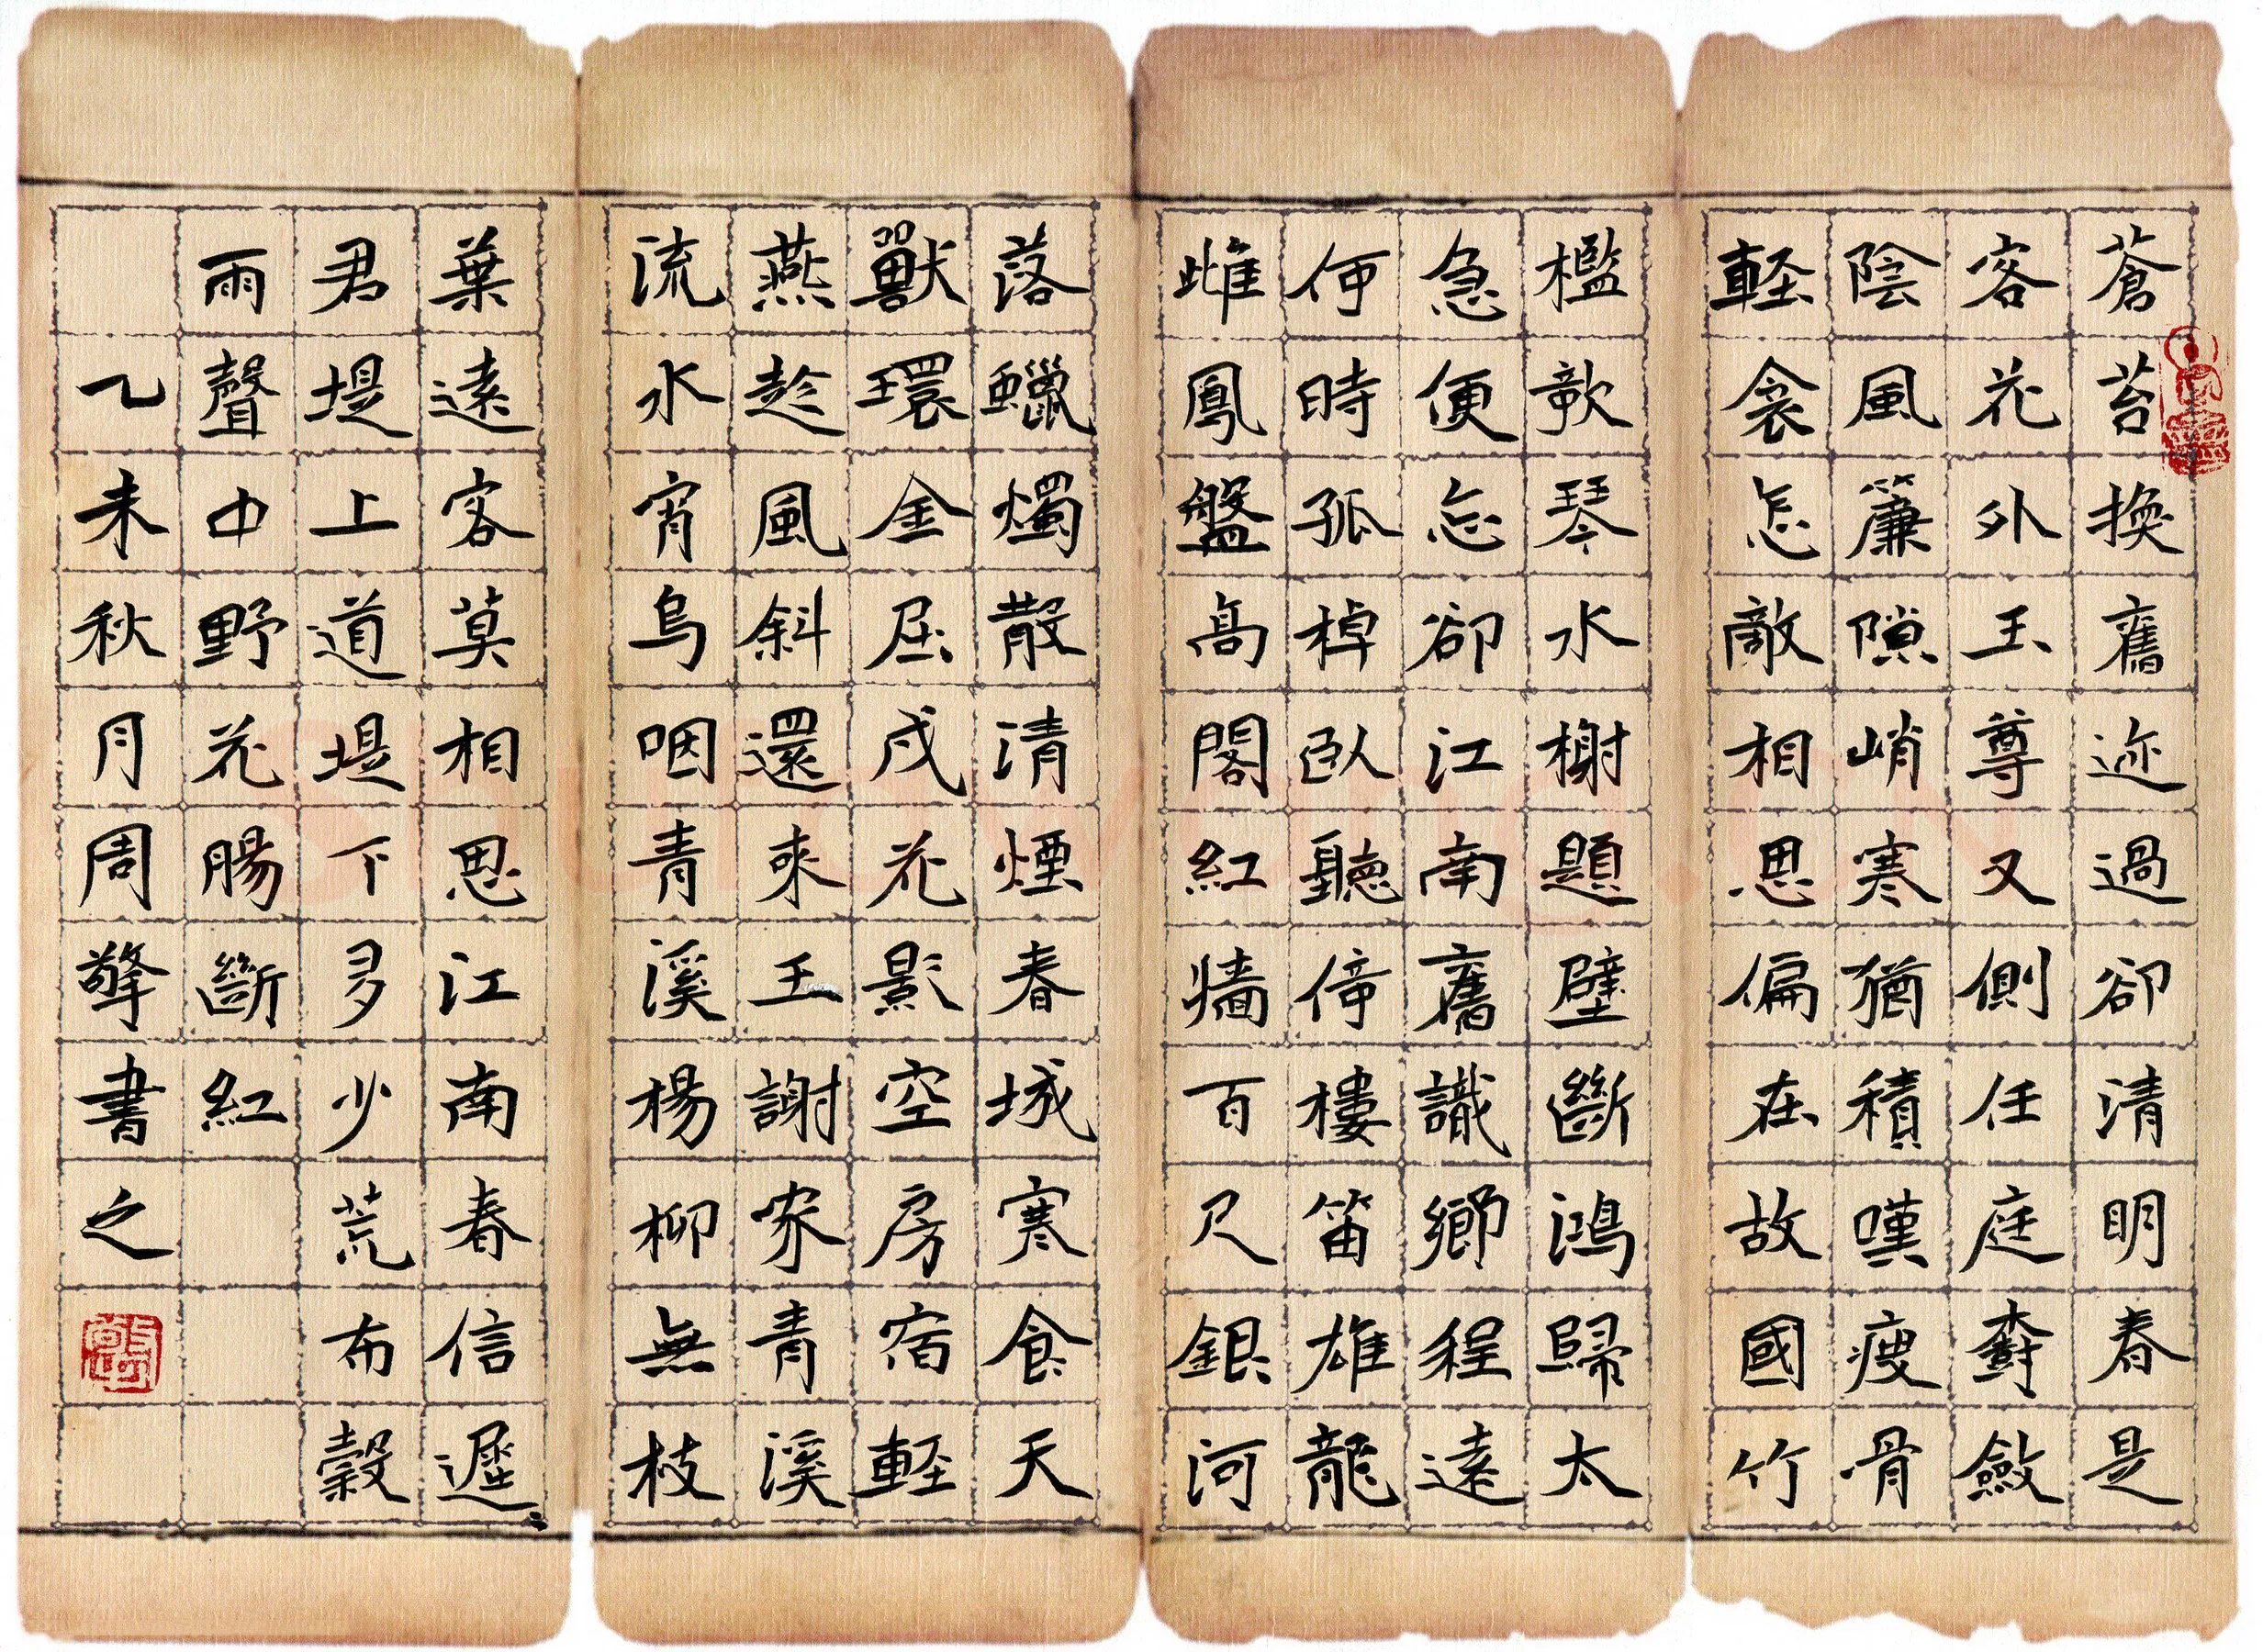 蒼苔換舊迹過卻清明春是
客花外玉尊又側任庭橭斂
陰風簾隙峭寒猶積嘆瘦骨
輕衾怎敵相思偏在故國竹
檻歌琴水榭題壁斷鴻歸太
急便忘卻江南舊識鄉程遠
何時孤棹臥聽倚樓笛雄龍
雌鳳盤高閣紅牆百尺銀河
落蠟燭散清煙春城寒食天
獸環金屈戌花影空房宿輕
燕趁風斜還來王謝家青溪
流水宵烏咽青溪楊柳無枝
葉遠客莫相思江南春信遲
君堤上道堤下多少荒布穀
雨聲中野花腸斷紅
乙未秋月周擎書之